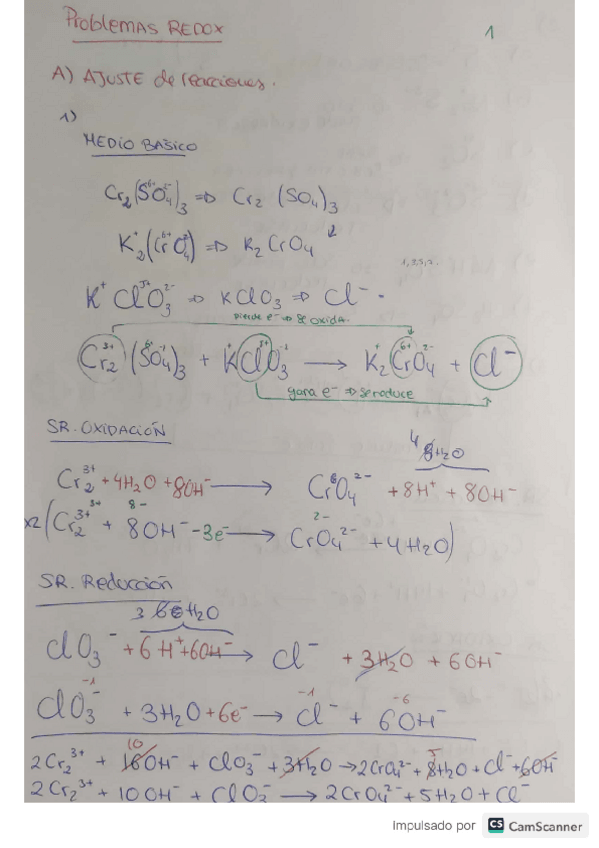 Problemas REDOX
1
A) AJUSTE de reacciones.
1)
MEDIO BÁSICO
Cr₂(SO₄)₃ ⇒ Cr₂(SO₄)₃
K₂(CrO₄) ⇒ K₂CrO₄
K⁺ ClO₃ ⇒ KClO₃ ⇒ Cl⁻.
pierde e⁻ ⇒ se oxida.
Cr₂(SO₄)₃ + KClO₃ → K₂CrO₄ + Cl⁻
gana e⁻ ⇒ se reduce
SR. OXIDACIÓN
4 8H₂O
Cr₂³⁺ + 4H₂O + 8OH⁻ → CrO₄²⁻ + 8H⁺ + 8OH⁻
x2 (Cr₂³⁺ + 8OH⁻ - 3e⁻ → CrO₄²⁻ + 4H₂O)
SR. Reducción
3 6H₂O
ClO₃⁻ + 6H⁺ + 6OH⁻ → Cl⁻ + 3H₂O + 6OH⁻
ClO₃⁻ + 3H₂O + 6e⁻ → Cl⁻ + 6OH⁻
2Cr₂³⁺ + 10 16OH⁻ + ClO₃⁻ + 3H₂O → 2CrO₄²⁻ + 5 8H₂O + Cl⁻ + 6OH⁻
2Cr₂³⁺ + 10OH⁻ + ClO₃⁻ → 2CrO₄²⁻ + 5H₂O + Cl⁻
Impulsado por CS CamScanner